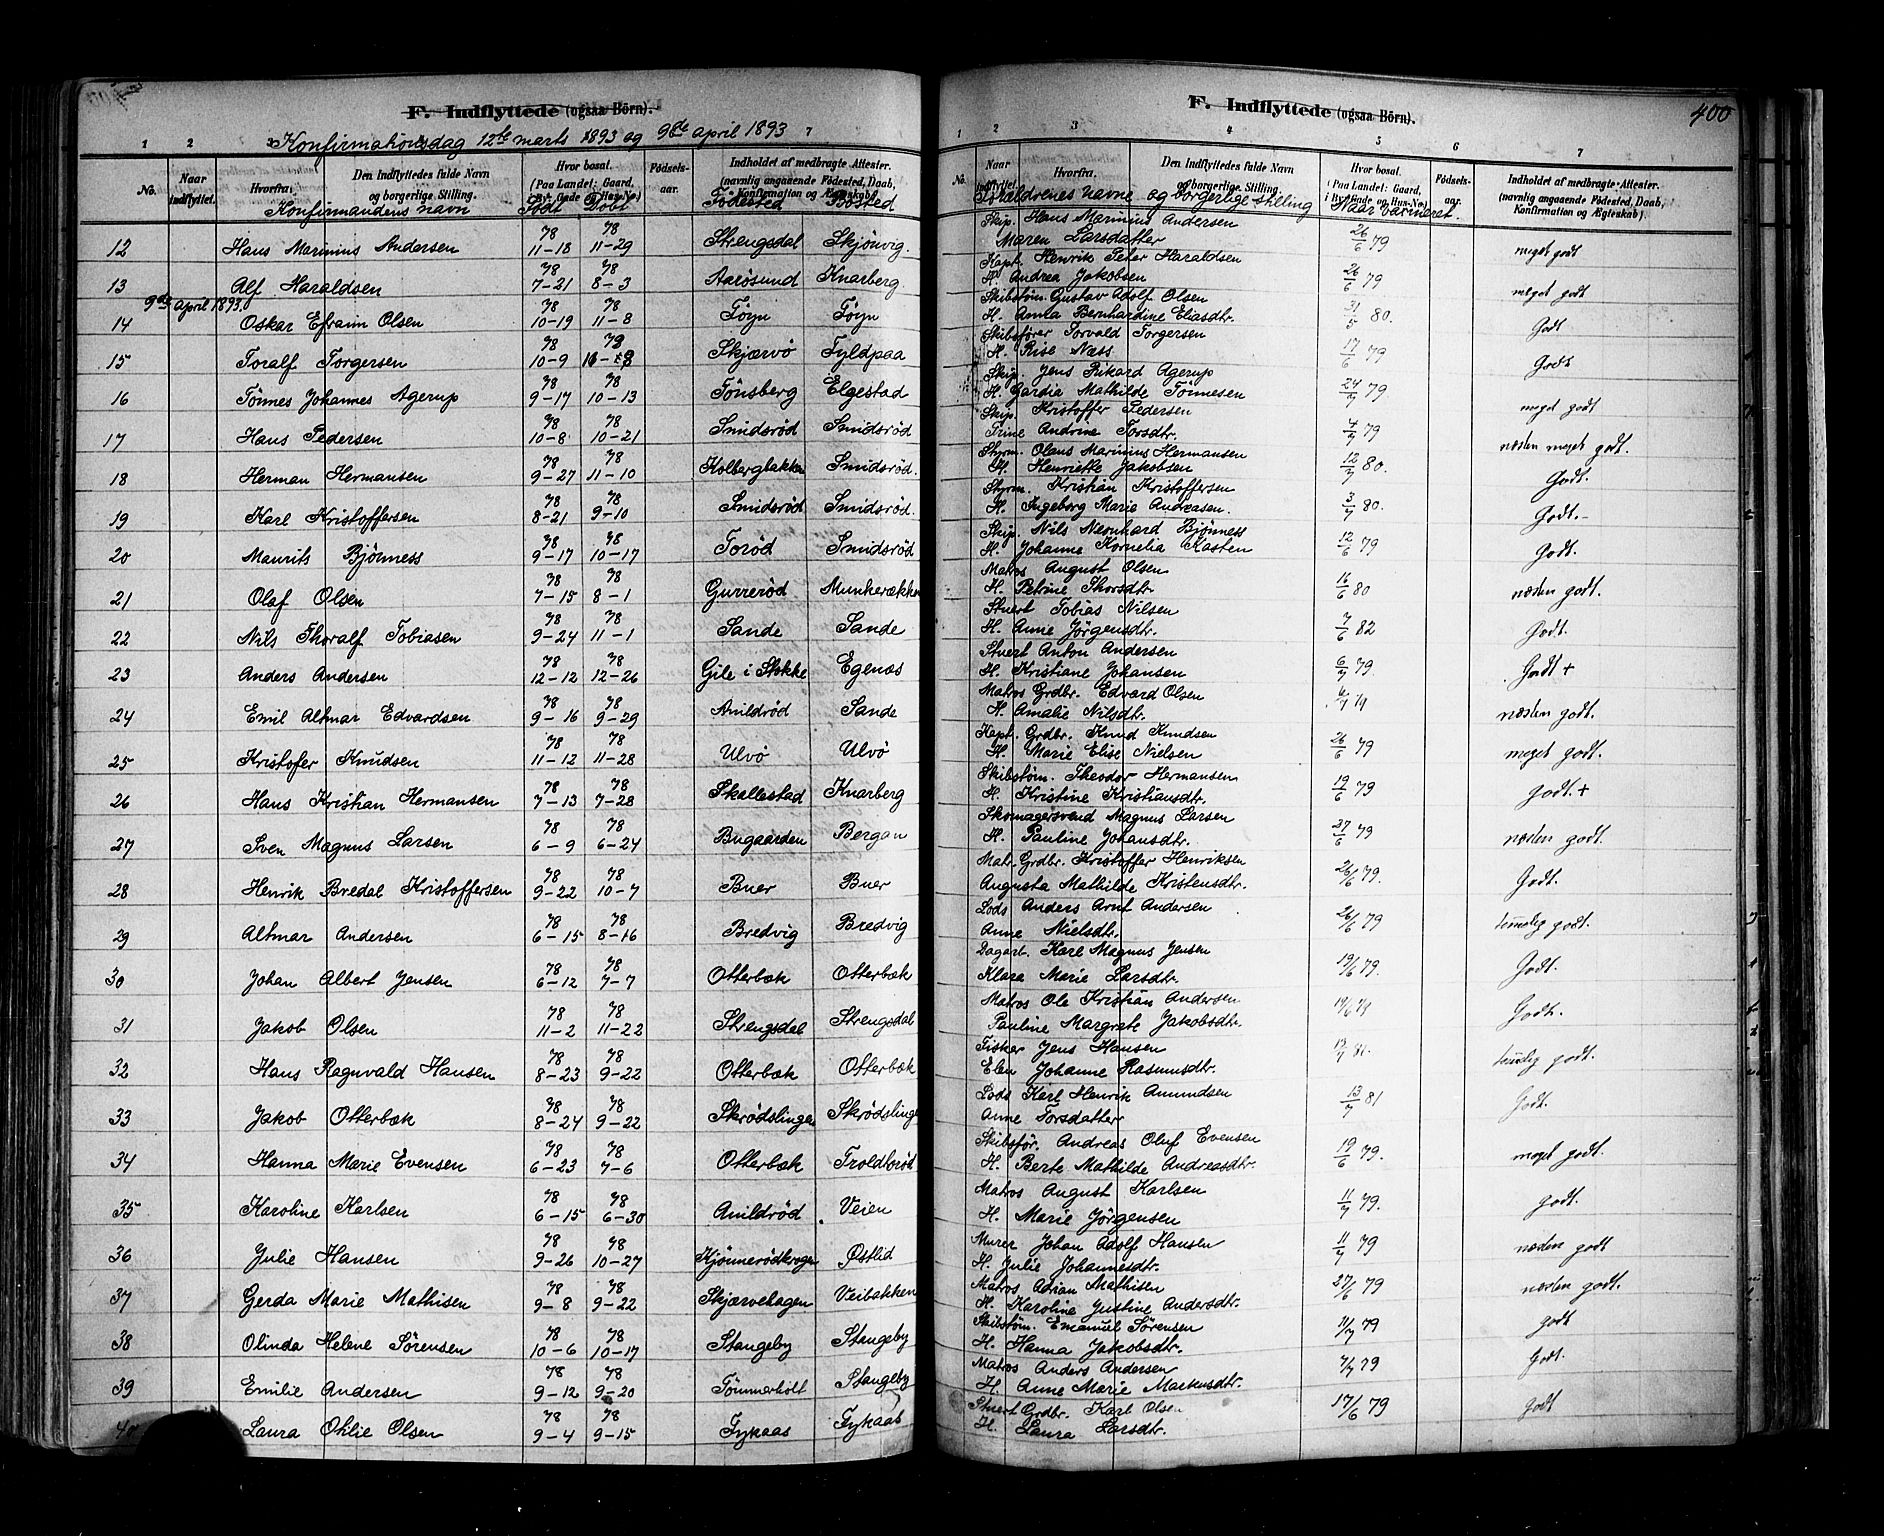 F. Indflyttede (ogsaa Börn).
Konfirmationsdag 12te marts 1893 og 9de april 1893
1 2 3 7
No. Naar indflyttet. Hvorfra. Den Indflyttedes fulde Navn og borgerlige Stilling. Hvor bosat. (Paa Landet: Gaard, i By: Gade og Hus-No.) Födsels-aar. Indholdet af medbragte Attester. (navnlig angaaende Födested, Daab, Konfirmation og Ægteskab).
Konfirmandens navn Født Døbt Fødested Bosted
12 Hans Marinius Andersen 78 11-18 78 11-29 Strengsdal Skjønvig.
13 Alf Haraldsen 78 7-21 78 8-3 Aarøsund Knarberg
9de april 1893.
14 Oskar Efraim Olsen 78 10-19 78 11-8 Føyn Føyn
15 Toralf Torgersen 78 10-9 78 Skjærvø Fyldpaa
16 Tønnes Johannes Agerup 78 9-17 78 10-13 Tønsberg Elgestad
17 Hans Pedersen 78 10-8 78 10-21 Smidsrød Smidsrød
18 Herman Hermansen 78 9-27 78 11-10 Kolbergbakken Smidsrød.
19 Karl Kristoffersen 78 8-21 78 9-10 Smidsrød Smidsrød.
20 Maurits Bjønness 78 9-17 78 10-17 Torød Smidsrød
21 Olaf Olsen 78 7-15 78 8-1 Gurrerød Munkerækken
22 Nils Thoralf Tobiasen 78 9-24 78 11-1 Sande Sande
23 Anders Andersen 78 12-12 78 12-26 Gile i Stokke Egenæs
24 Emil Altmar Edvardsen 78 9-16 78 9-29 Anildrød Sande
25 Kristofer Knudsen 78 11-12 78 11-28 Ulvø Ulvø
26 Hans Kristian Hermansen 78 7-13 78 7-28 Skallestad Knarberg
27 Sven Magnus Larsen 78 6-9 78 6-24 Bugaarden Bergan
28 Henrik Bredal Kristoffersen 78 9-22 78 10-7 Buer Buer
29 Altmar Andersen 78 6-15 78 8-16 Bredvig Bredvig
30 Johan Albert Jensen 78 6-12 78 7-7 Otterbæk Otterbæk
31 Jakob Olsen 78 11-2 78 11-22 Strengsdal Strengsdal
32 Hans Ragnvald Hansen 78 8-23 78 9-22 Otterbæk Otterbæk
33 Jakob Otterbæk 78 8-24 78 9-22 Skrødslingen Skrødslingen
34 Hanna Marie Evensen 78 6-23 78 7-6 Otterbæk Troldborød
35 Karoline Karlsen 78 6-15 78 6-30 Anildrød Veien
36 Julie Hansen 78 9-26 78 10-27 Kjønnerødkrogen Østlid
37 Gerda Marie Mathisen 78 9-8 78 9-22 Skjærvehagen Veibakken
38 Olinda Helene Sørensen 78 10-6 78 10-17 Stangeby Stangeby
39 Emilie Andersen 78 9-12 78 9-20 Tømmerholt Stangeby
40 Laura Othlie Olsen 78 9-4 78 9-15 Fykaas Fykaas
F. Indflyttede (ogsaa Börn).
400
1 2 3 4 5 6 7
No. Naar indflyttet. Hvorfra. Den Indflyttedes fulde Navn og borgerlige Stilling. Hvor bosat. (Paa Landet: Gaard, i By: Gade og Hus-No.) Födsels-aar. Indholdet af medbragte Attester. (navnlig angaaende Födested, Daab, Konfirmation og Ægteskab).
Forældrenes navne og borgerlige stilling Naar vacineret.
Skip. Hans Marinius Andersen
Maren Larsdatter 26/6 79 meget godt
Kapt. Henrik Peter Haraldsen
H. Andrea Jakobsen 26/6 79 meget godt
Skibstøm. Gustav Adolf Olsen
H. Amla Bernhardine Eliasdtr. 31/5 80. Godt
Skibsfører Torvald Torgersen
H. Rise Næss 17/6 79 Godt
Skip. Jens Rikard Agerup
H. Gardia Mathilde Tønnesen 24/7 79. meget godt
Skip. Kristoffer Pedersen
Trine Andrine Torsdtr. 4/7 79 næsten meget godt.
Styrm. Olaus Marinius Hermansen
H. Henriette Jakobsen 12/7 80. Godt.
Styrm. Kristian Kristoffersen
H. Ingeborg Marie Andreasen. 3/7 80. Godt.-
Skip. Nils Neonhard Bjønness
H. Johanne Kornelia Kasten 12/6 79 Godt.
Matros August Olsen
H. Petrine Thorsdtr. 16/6 80 næsten godt.
Stuert Tobias Nilsen
H. Anne Jørgensdtr. 7/6 82 Godt.
Stuert Anton Andersen
H. Kristiane Johansen 6/7 79. Godt +
Matros Grdbr. Edvard Olsen
H. Amalie Nilsdtr. næsten godt.
Kapt. Grdbr. Knud Knudsen
H. Marie Elise Nielsen 26/6 79 meget godt.
Skibstøm. Theodor Hermansen
H. Kristine Kristiansdtr. 19/6 79 godt.+
Skomagersvend Magnus Larsen
H. Pauline Johansdtr. 27/6 79 næsten godt.
Matr. Grdbr. Kristoffer Henriksen
Augusta Mathilde Kristensdtr. 26/6 79. Godt.
Lods Anders Arnt Andersen
Anne Nielsdtr. 26/6 79 temmelig godt.
Dagarb. Karl Magnus Jensen
Klara Marie Larsdtr. 19/6 79. Godt.
Matros Ole Kristian Andersen
Pauline Margrete Jakobsdtr. 19/6 79 Godt.
Fisker Jens Hansen
Elen Johanne Rasmusdtr. temmelig godt.
Lods Karl Henrik Amundsen
Anne Torsdatter 13/7 81 Godt.
Skibsfør. Andreas Oluf Evensen
H. Berte Mathilde Andreasdtr. 19/6 79. meget godt.
Matros August Karlsen
H. Marie Jørgensen 11/7 79. godt.
Murer Johan Adolf Hansen
H. Julie Johannesdtr. 11/7 79 næsten godt
Matros Adrian Mathisen
H. Karoline Justine Andersdtr. 27/6 79 næsten godt.
Skibstøm. Emanuel Sørensen
H. Hanna Jakobsdtr. 11/7 79 godt
Matros Anders Andersen
H. Anne Marie Markusdtr. 7/7 79 Godt.
Stuert Grdbr. Karl Olsen
H. Laura Larsdtr. 17/6 79 godt